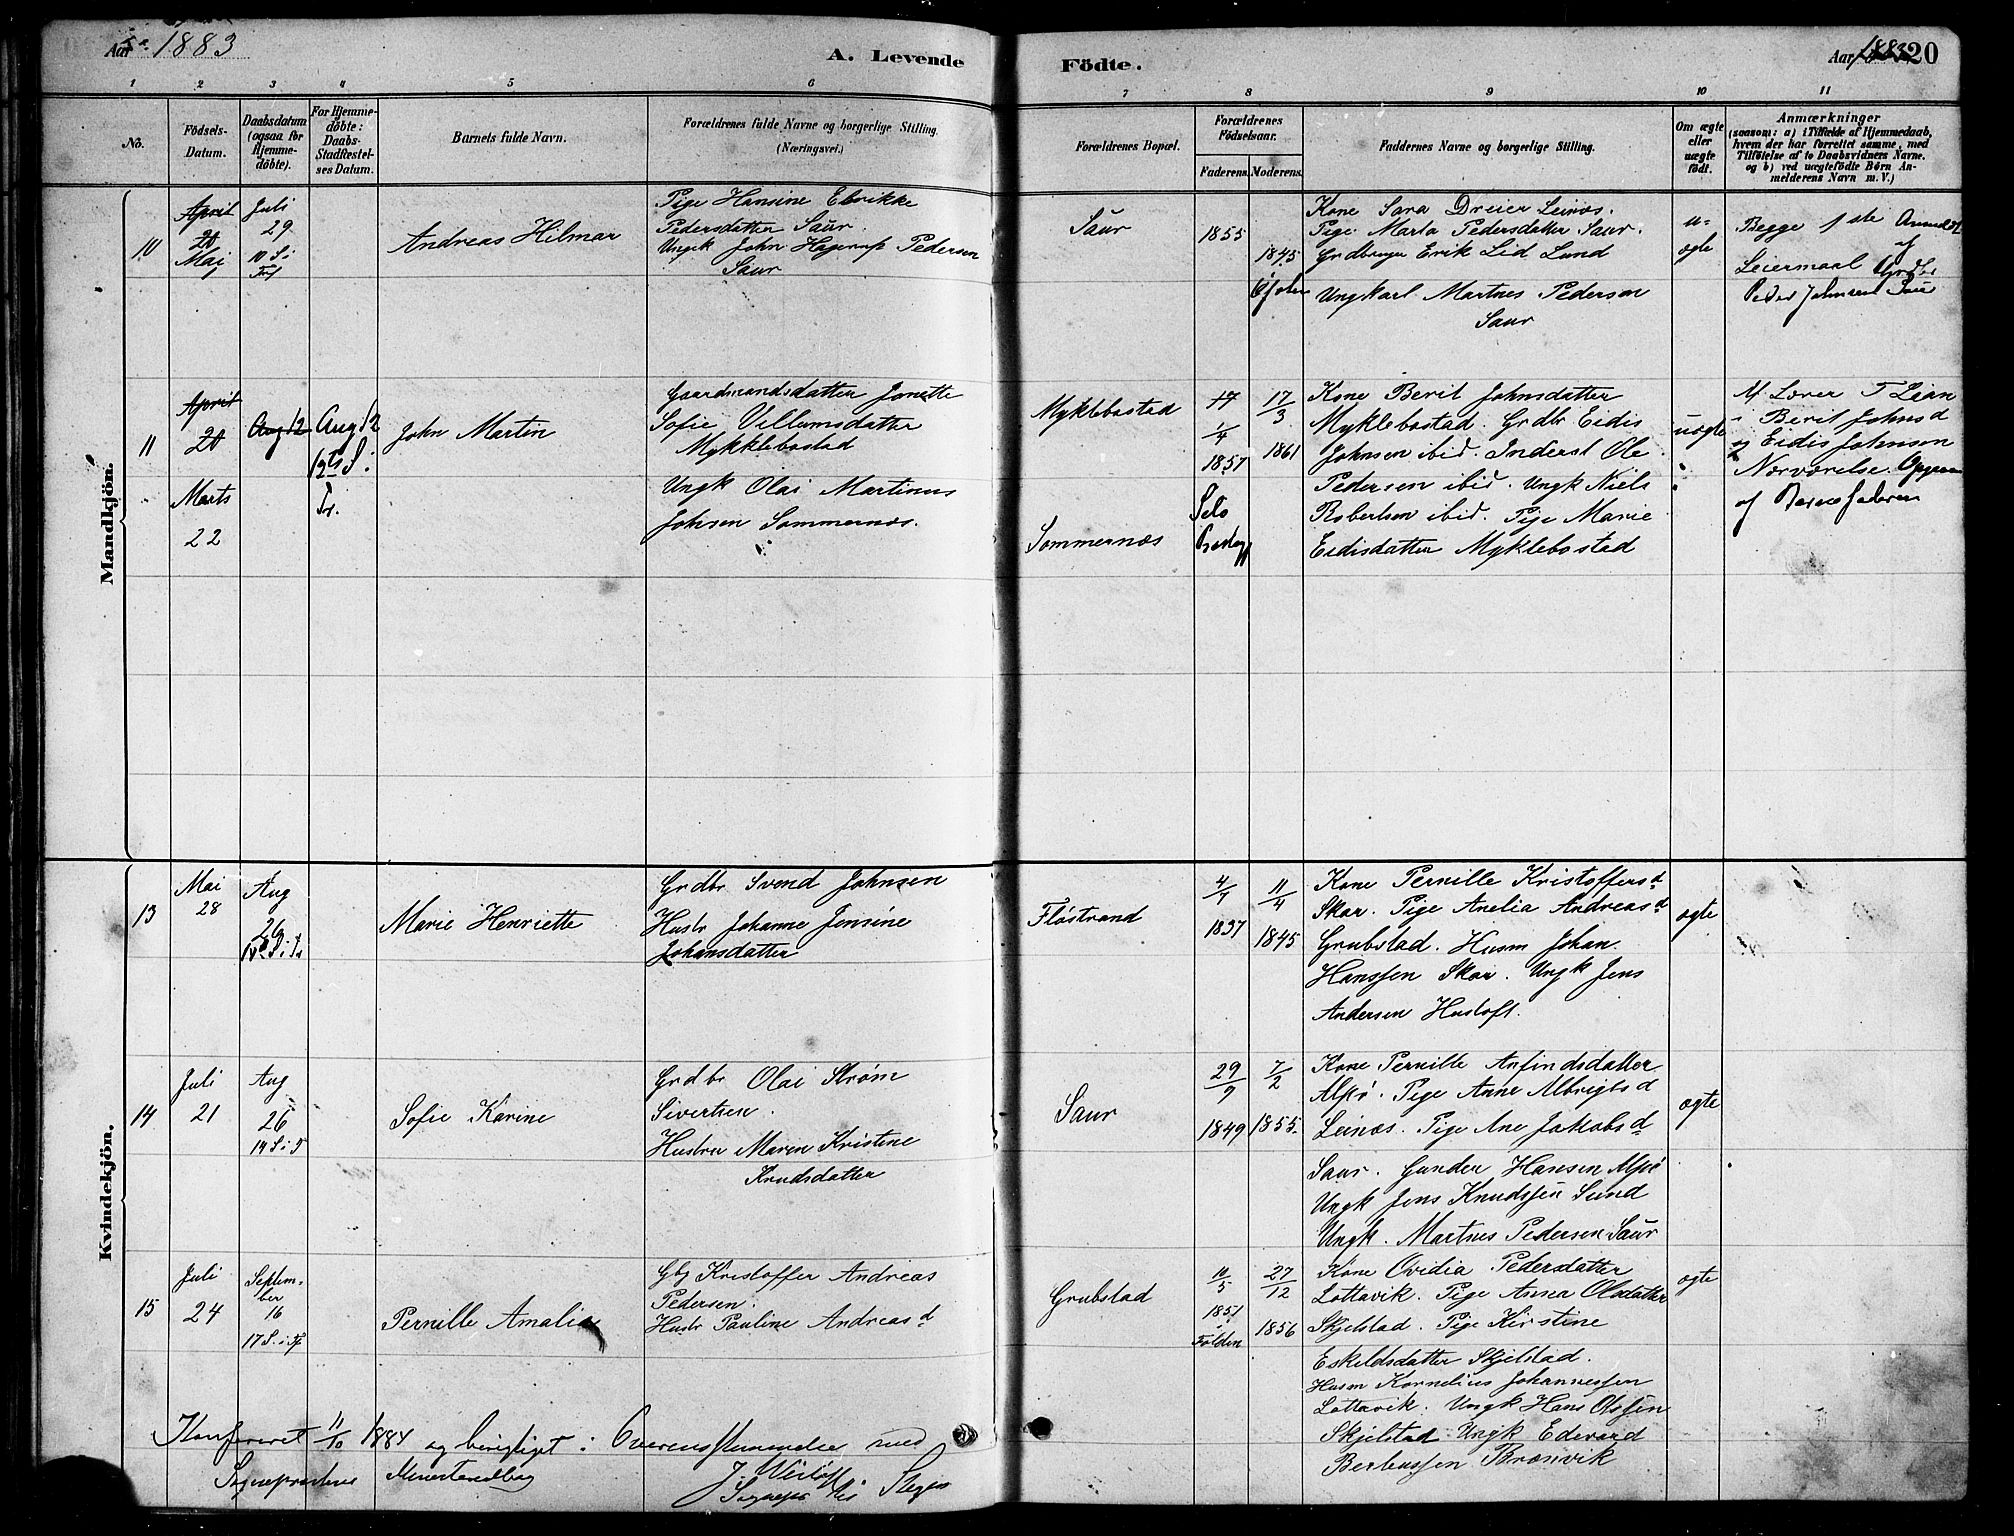 Aar 1883
A. Levende
Födte.
Aar 1883
20
1 2 3 4 5 6 7 8 9 10 11
No.
Födsels-
Datum.
Daabsdatum
(ogsaa for
Hjemme-
döbte).
For Hjemme-
döbte:
Daabs-
Stadfæstel-
ses Datum.
Barnets fulde Navn.
Forældrenes fulde Navne og borgerlige Stilling.
(Næringsvei.)
Forældrenes Bopæl.
Forældrenes
Födselsaar.
Faderens.
Moderens.
Faddernes Navne og borgerlige Stilling.
Om ægte
eller
uægte
födt.
Anmærkninger
(saasom: a) i Tilfælde af Hjemmedaab,
hvem der har forrettet samme, med
Tilföielse af to Daabsvidners Navne.
og b) ved uægtefödte Börn An-
melderens Navn m. V.)
Mandkjön.
10
April
20
Mai
1
Juli
29
10 S. i
Tref
Andreas Hilmar
Pige Hansine Elvrikke
Pedersdatter Saur.
Ungk John Hagerup Pedersen
Saur
Saur
1855
1845
Kone Sara Dreier Leinæs.
Pige Marta Pedersdatter Saur.
Grdbruger Erik Lid Lund
Ungkarl Martnes Pedersen
Saur
u-
ægte
Begge 1ste
Leiermaal
Peder Johnsen Saur
11
April
20
Marts
22
Aug 12
Aug 12
12te S. i
Tr.
John Martin
Gaardmandsdatter Jonette
Sofie Villumsdatter
Mykklebostad
Ungk Olai Martinus
Johsen Sommernæs.
Myklebostad
Sommernæs
17
1/4
1857
17/3
1861
Kone Berit Johnsdatter
Myklebostad. Grdbr Eidis
Johnsen ibid. Inderst Ole
Pedersen ibid. Ungk Niels
Robertsen ibid. Pige Marie
Eidisdatter Myklebostad
uægte
Af Lærer T Lian
i Berit Johnsd
og Eidis Johnsen
Nærværelse.
af Barnefaderen
Kvindekjön.
13
Mai
28
Aug
26
Marie Henriette
Grdbr Svend Johnsen
Hustr Johanne Jensine
Johansdatter
Fløstrand
4/7
1837
11/4
1845
Kone Pernille Kristoffersd
Skar. Pige Anelia Andreasd
Grubstad. Husm Johan
Hanssen Skar. Ungk Jens
Andersen Hustoft.
ægte
14
Juli
21
Aug
26
14 S. i T
Sofie Karine
Grdbr Olai Strøm
Sivertsen.
Hustru Maren Kristine
Knudsdatter
Saur
29/9
1849
7/2
1855.
Kone Pernille Anfindsdatter
Alpø. Pige Anne Albrigtsd
Leinæs. Pige Ane Jakobsd
Saur. Gunder Hansen Alpø
Ungk Jens Knudssen Lund
Ungk. Martnes Pedersen Saur
ægte
15
Juli
24
Septem-
ber
16
17 S. i Tr
Pernille Amalia
Gbg Kristoffer Andreas
Pedersen.
Hustr Pauline Andreasd
Grubstad
10/5
1851
i
Folden
27/12
1856
Kone Ovidia Pedersdatter
Lottavik. Pige Anna Olsdatter
Skjelstad. Pige Kirstine
Eskildsdatter Skjelstad.
Husm Kornelius Johannessen
Lottavik. Ungk Hans Olssen
Skjelstad Ungk Edevard
Berteussen Brænvik
ægte
Konfereret 11/10 1884 og berigtiget i Overensstemmelse med
Sognepræstens Ministerialbog
Stegen